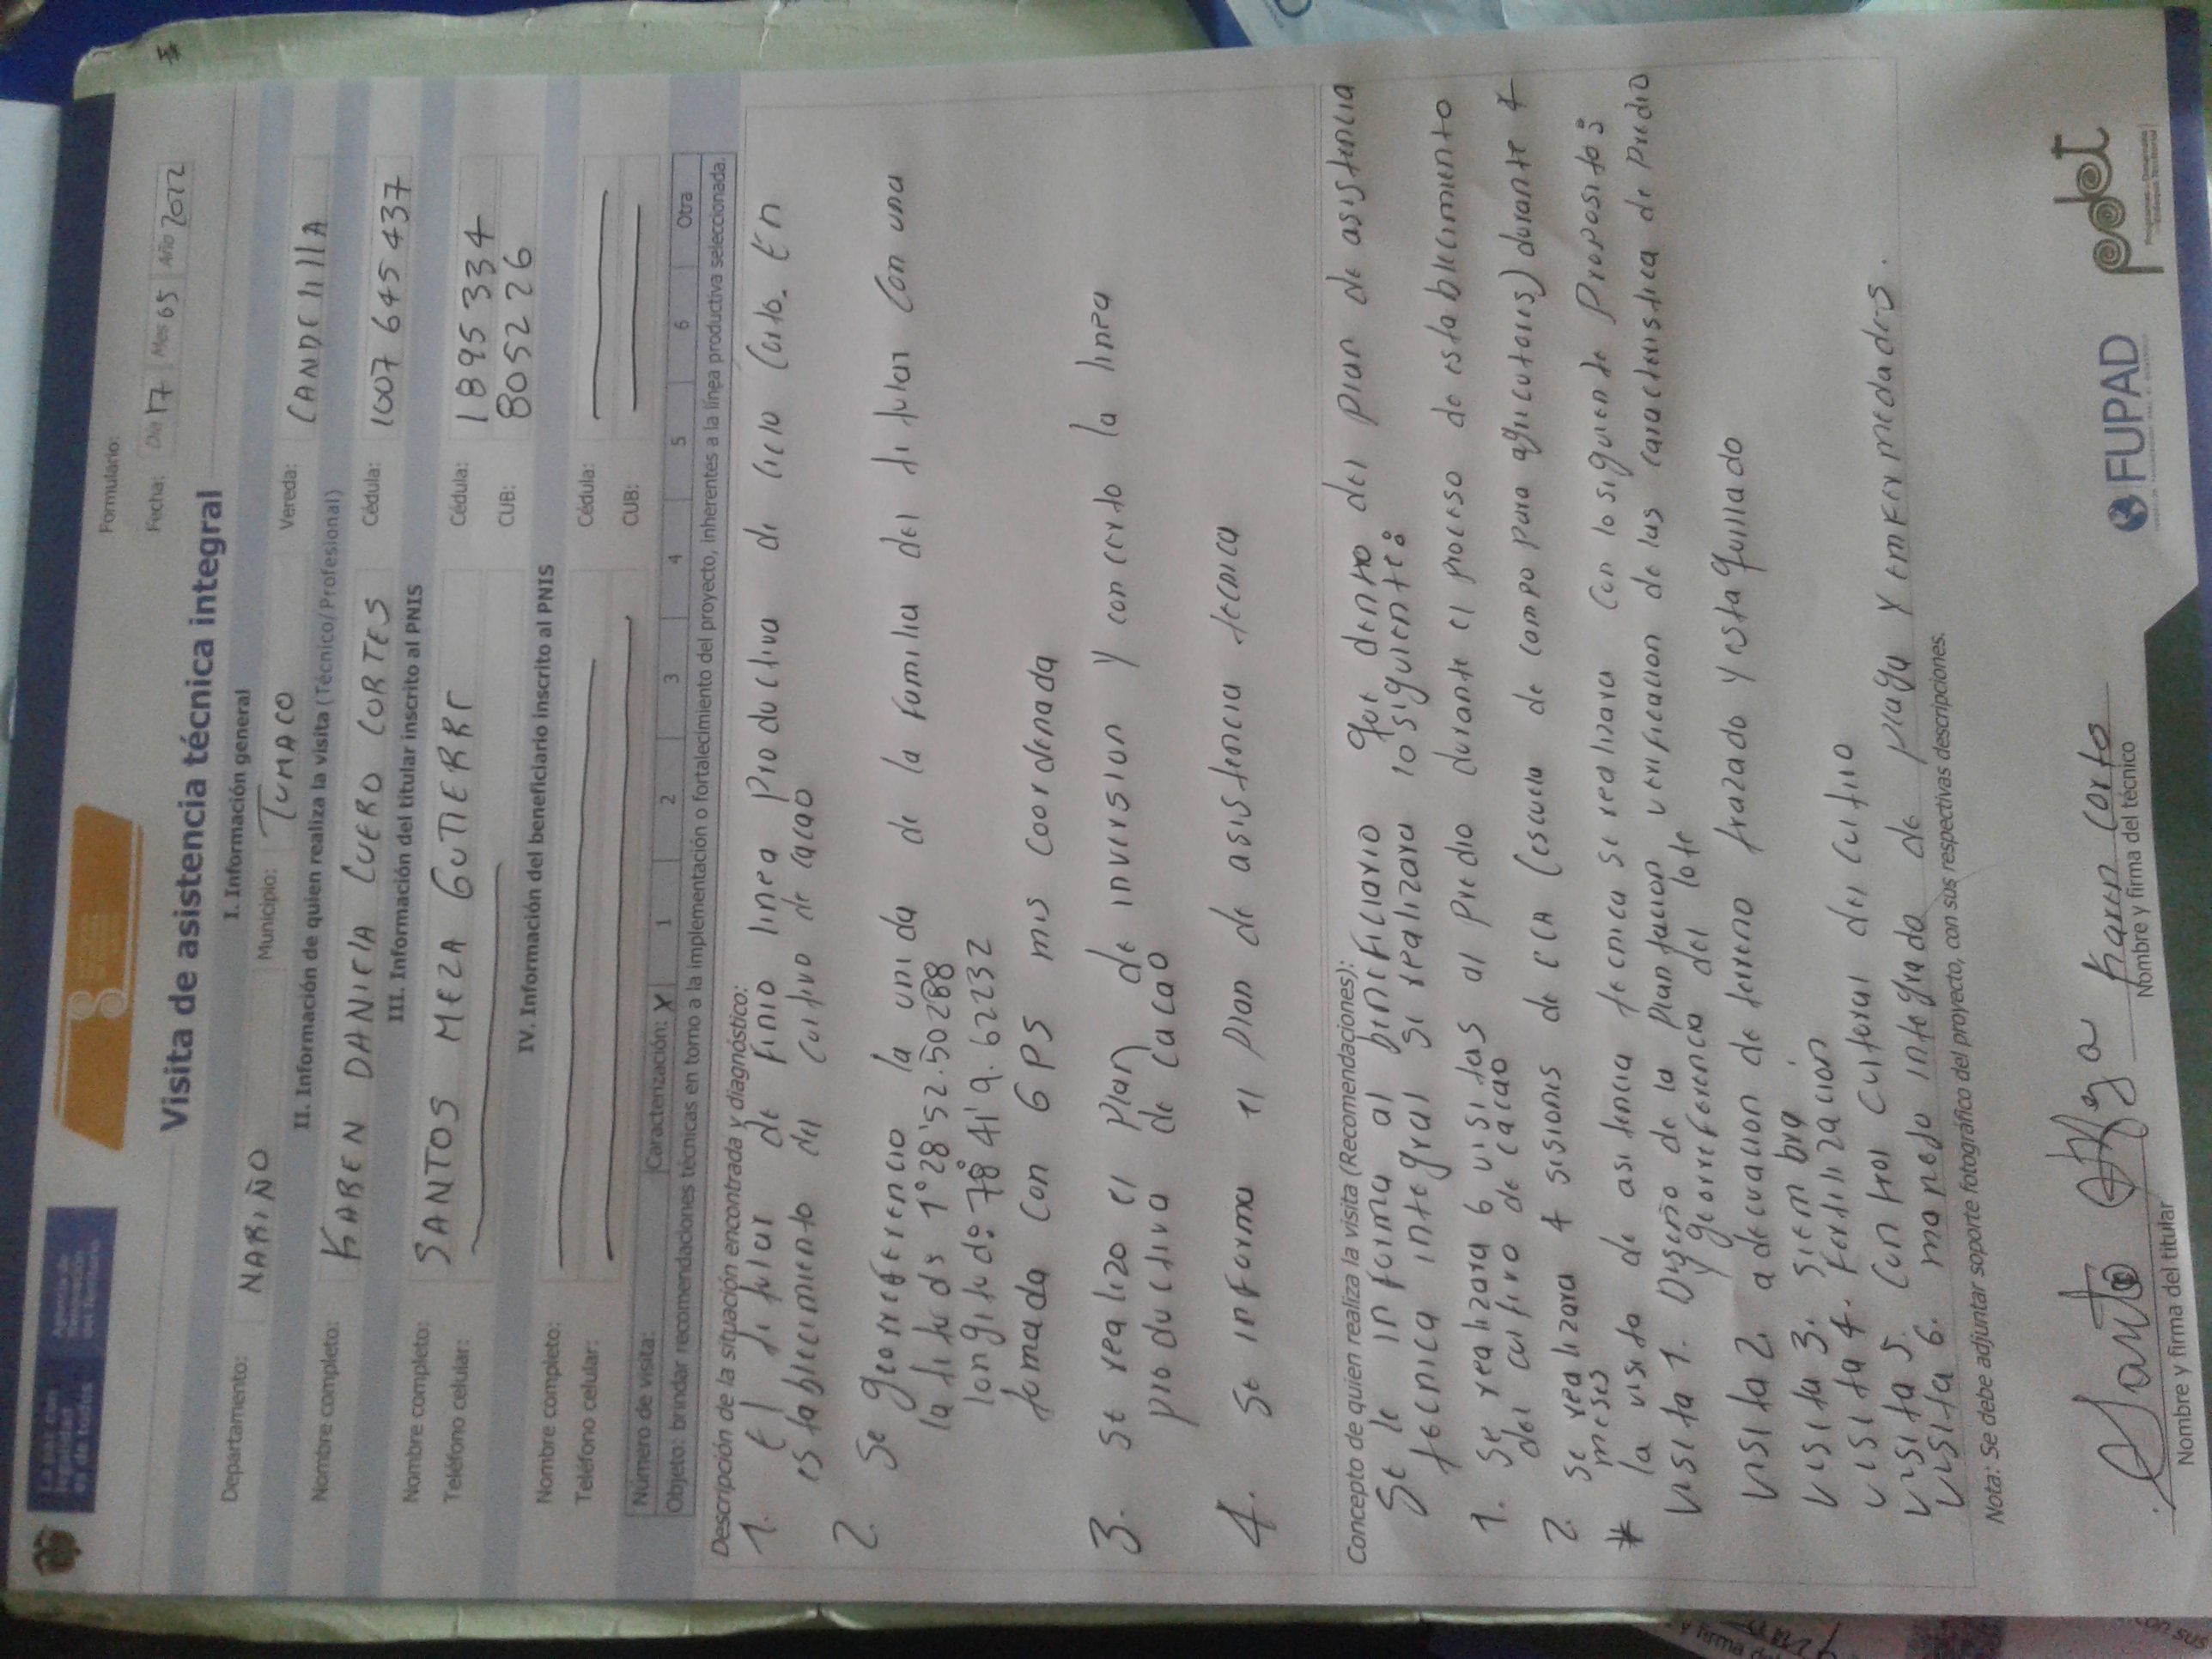 Formulario:
Fecha: Día 17 Mes 05 Año 2022
Visita de asistencia técnica integral
I. Información general
Departamento: NARIÑO Municipio: TUMACO Vereda: CANDElIllA
II. Información de quien realiza la visita (Técnico/Profesional)
Nombre completo: KAREN DANIELA CUERO CORTES Cédula: 1007645437
III. Información del titular inscrito al PNIS
Nombre completo: SANTOS MEZA GUTIERRE Cédula: 1895334
Teléfono celular: CUB: 805226
IV. Información del beneficiario inscrito al PNIS
Nombre completo: Cédula:
Teléfono celular: CUB:
Número de visita: Caracterización: X 1 2 3 4 5 6 Otra
Objeto: brindar recomendaciones técnicas en torno a la implementación o fortalecimiento del proyecto, inherentes a la línea productiva seleccionada.
Descripción de la situación encontrada y diagnóstico:
1. El titular de finio linea productiva de ciclo corto. En
establecimiento del cultivo de cacao
2. Se georreferencio la unida de la familia del titular con una
latitud: 1°28'52.50288
longitud: 78°41'9.62232
tomada con GPS mis coordenada
3. Se realizo el plan de inversion y concerto la linea
productiva de cacao
4. Se informa el plan de asistencia tecnica
Concepto de quien realiza la visita (Recomendaciones):
Se le informa al beneficiario que dentro del plan de asistencia
tecnica integral se realizara lo siguiente:
1. Se realizara 6 visitas al predio durante el proceso de establecimiento
del cultivo de cacao
2. Se realizara 4 sisiones de ECA (escuela de campo para agricutores) durante 4
meses
* la visita de asitencia tecnica se realizara con lo siguiente propositos:
Visita 1. Diseño de la plantacion verificacion de las caracteristica de predio
y georreferencia del lote
Visita 2. adecuacion de terreno trazado y estaquillado
Visita 3. siembra
Visita 4. Fertilización
Visita 5. Control cultural del cultivo
Visita 6. manejo integrado de plaga y enfermedades.
Nota: Se debe adjuntar soporte fotográfico del proyecto, con sus respectivas descripciones.
Santo Meza Karen Corte
Nombre y firma del titular Nombre y firma del técnico
FUPAD
pdet